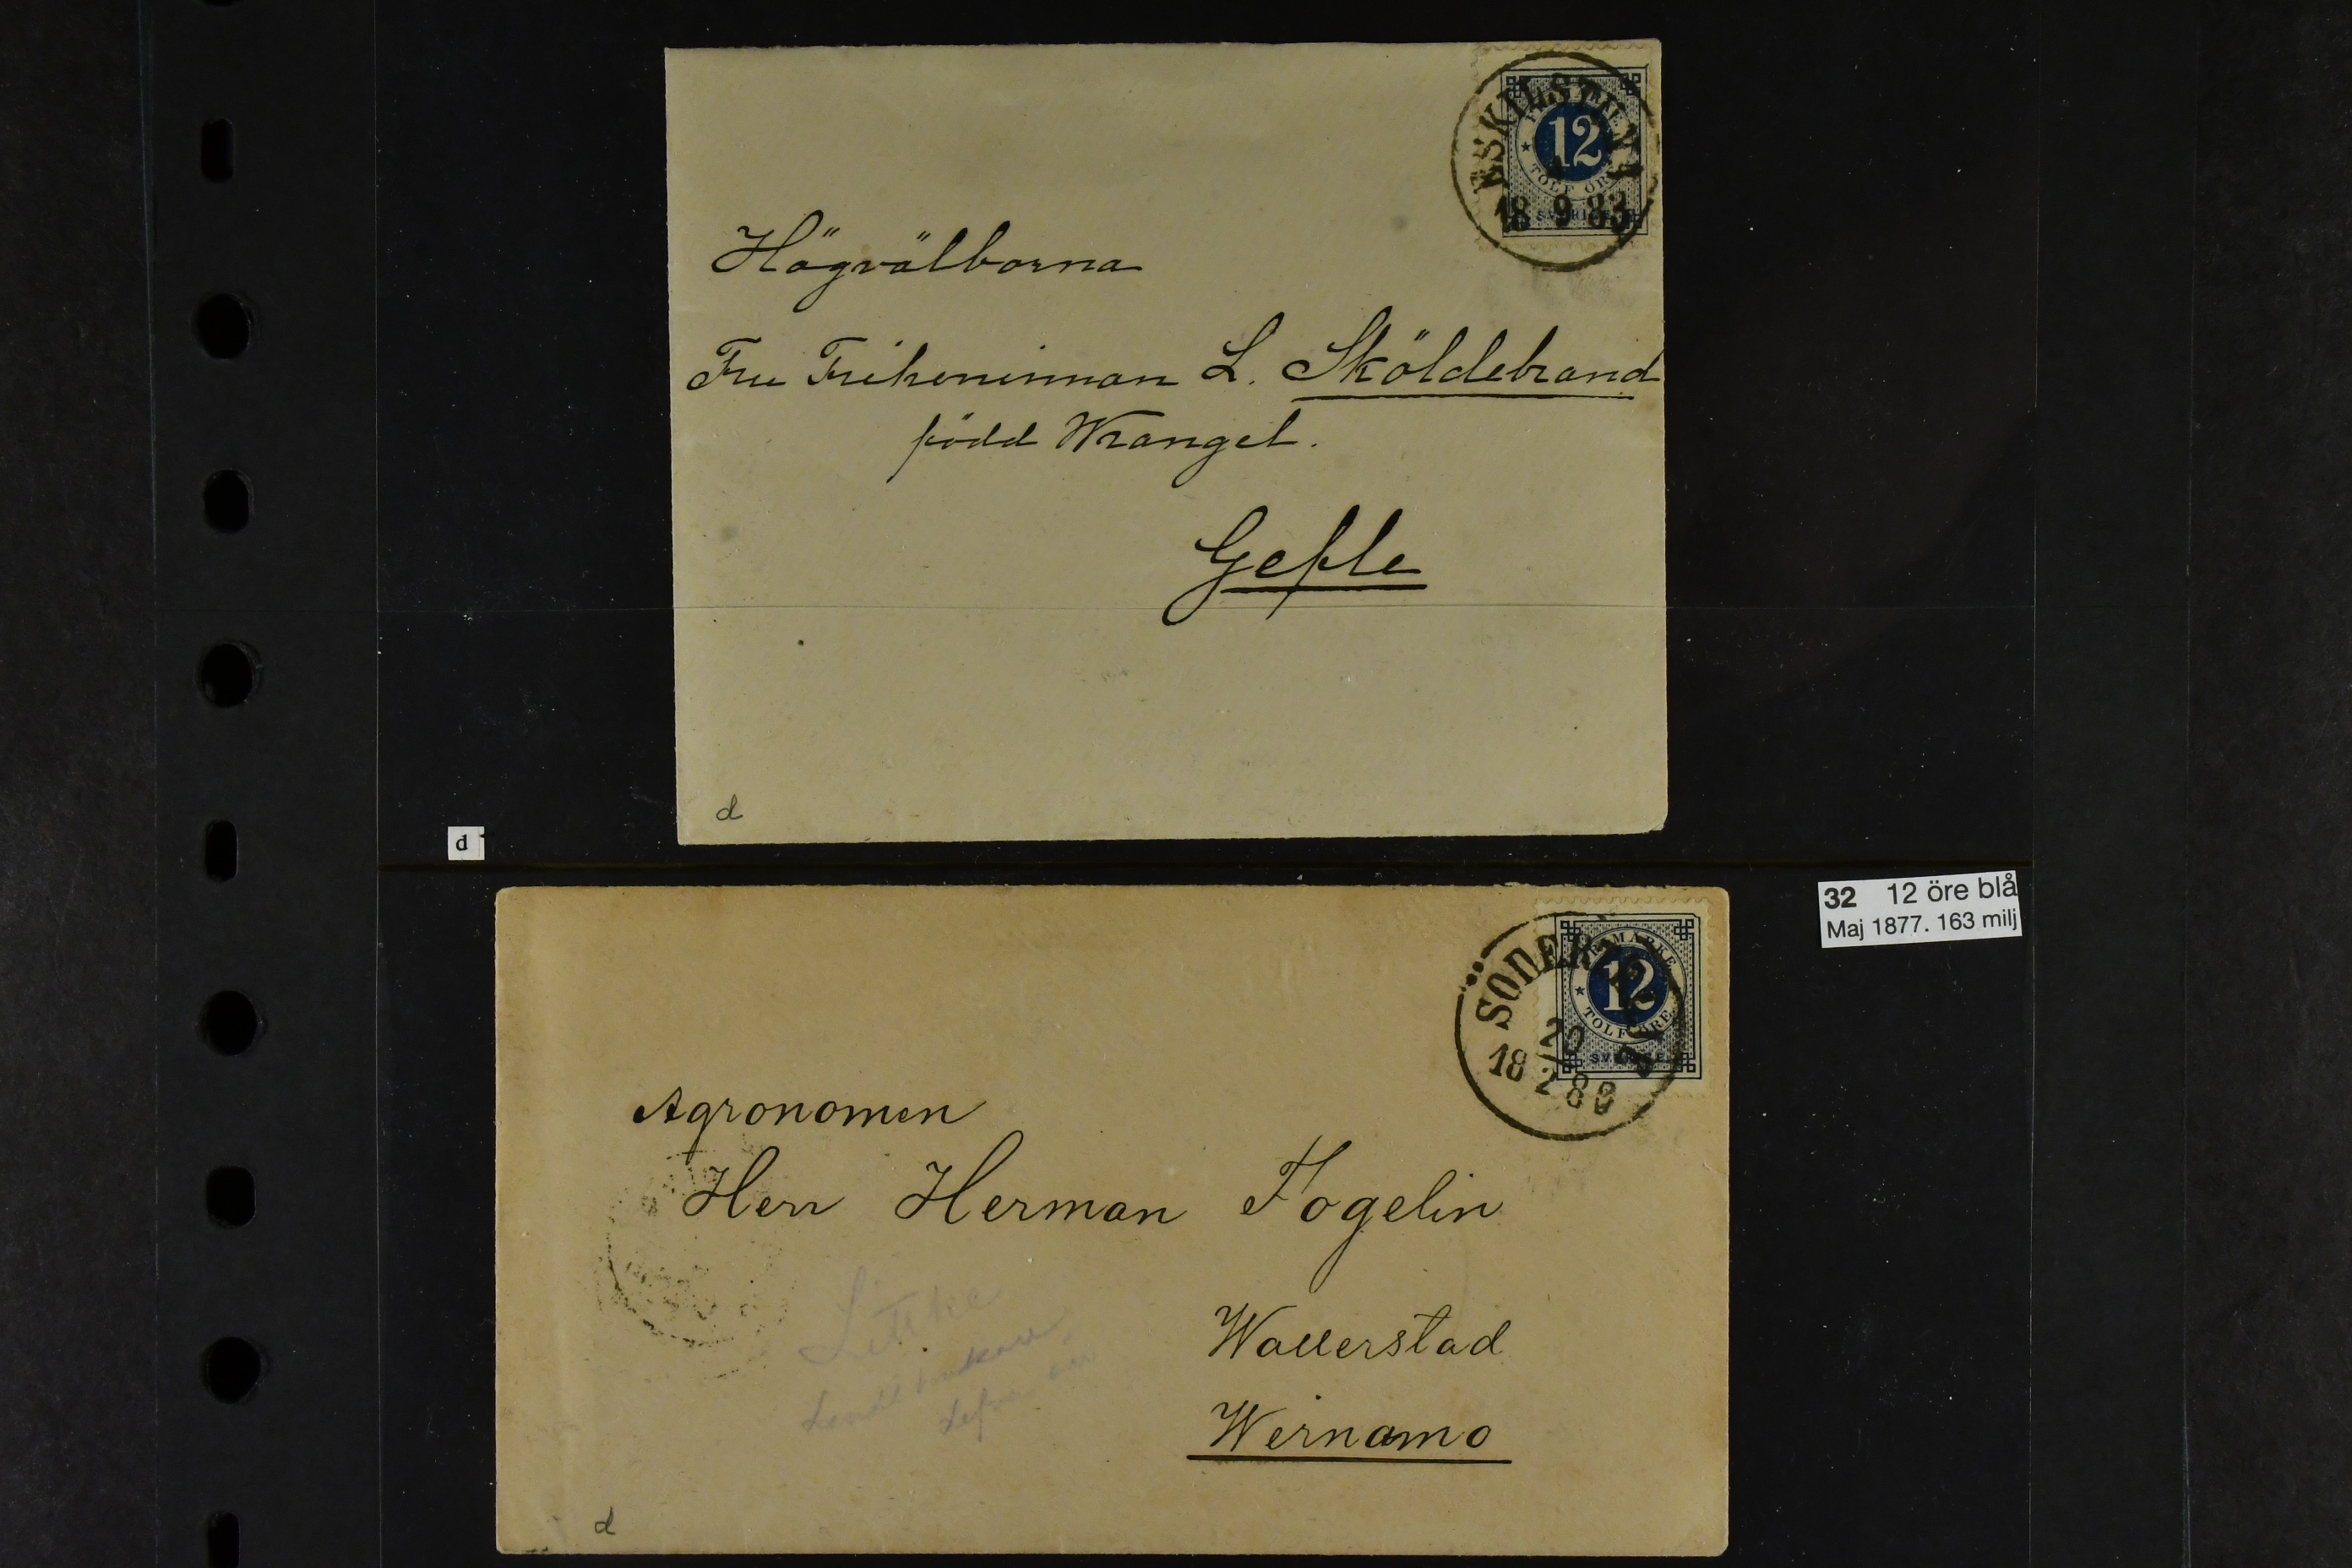 ESKILSTUNA
18 9 83
FRIMÄRKE
12
TOLF ÖRE
SVERIGE
Högvälborna
Fru Friherinnan L. Sköldebrand
född Wrangel.
Gefle
d
d
32 12 öre blå
Maj 1877. 163 milj
SÖDERTELGE
20
18 2 89
FRIMÄRKE
12
TOLF ÖRE
SVERIGE
Agronomen
Herr Herman Fogelin
Wallerstad
Wernamo
d